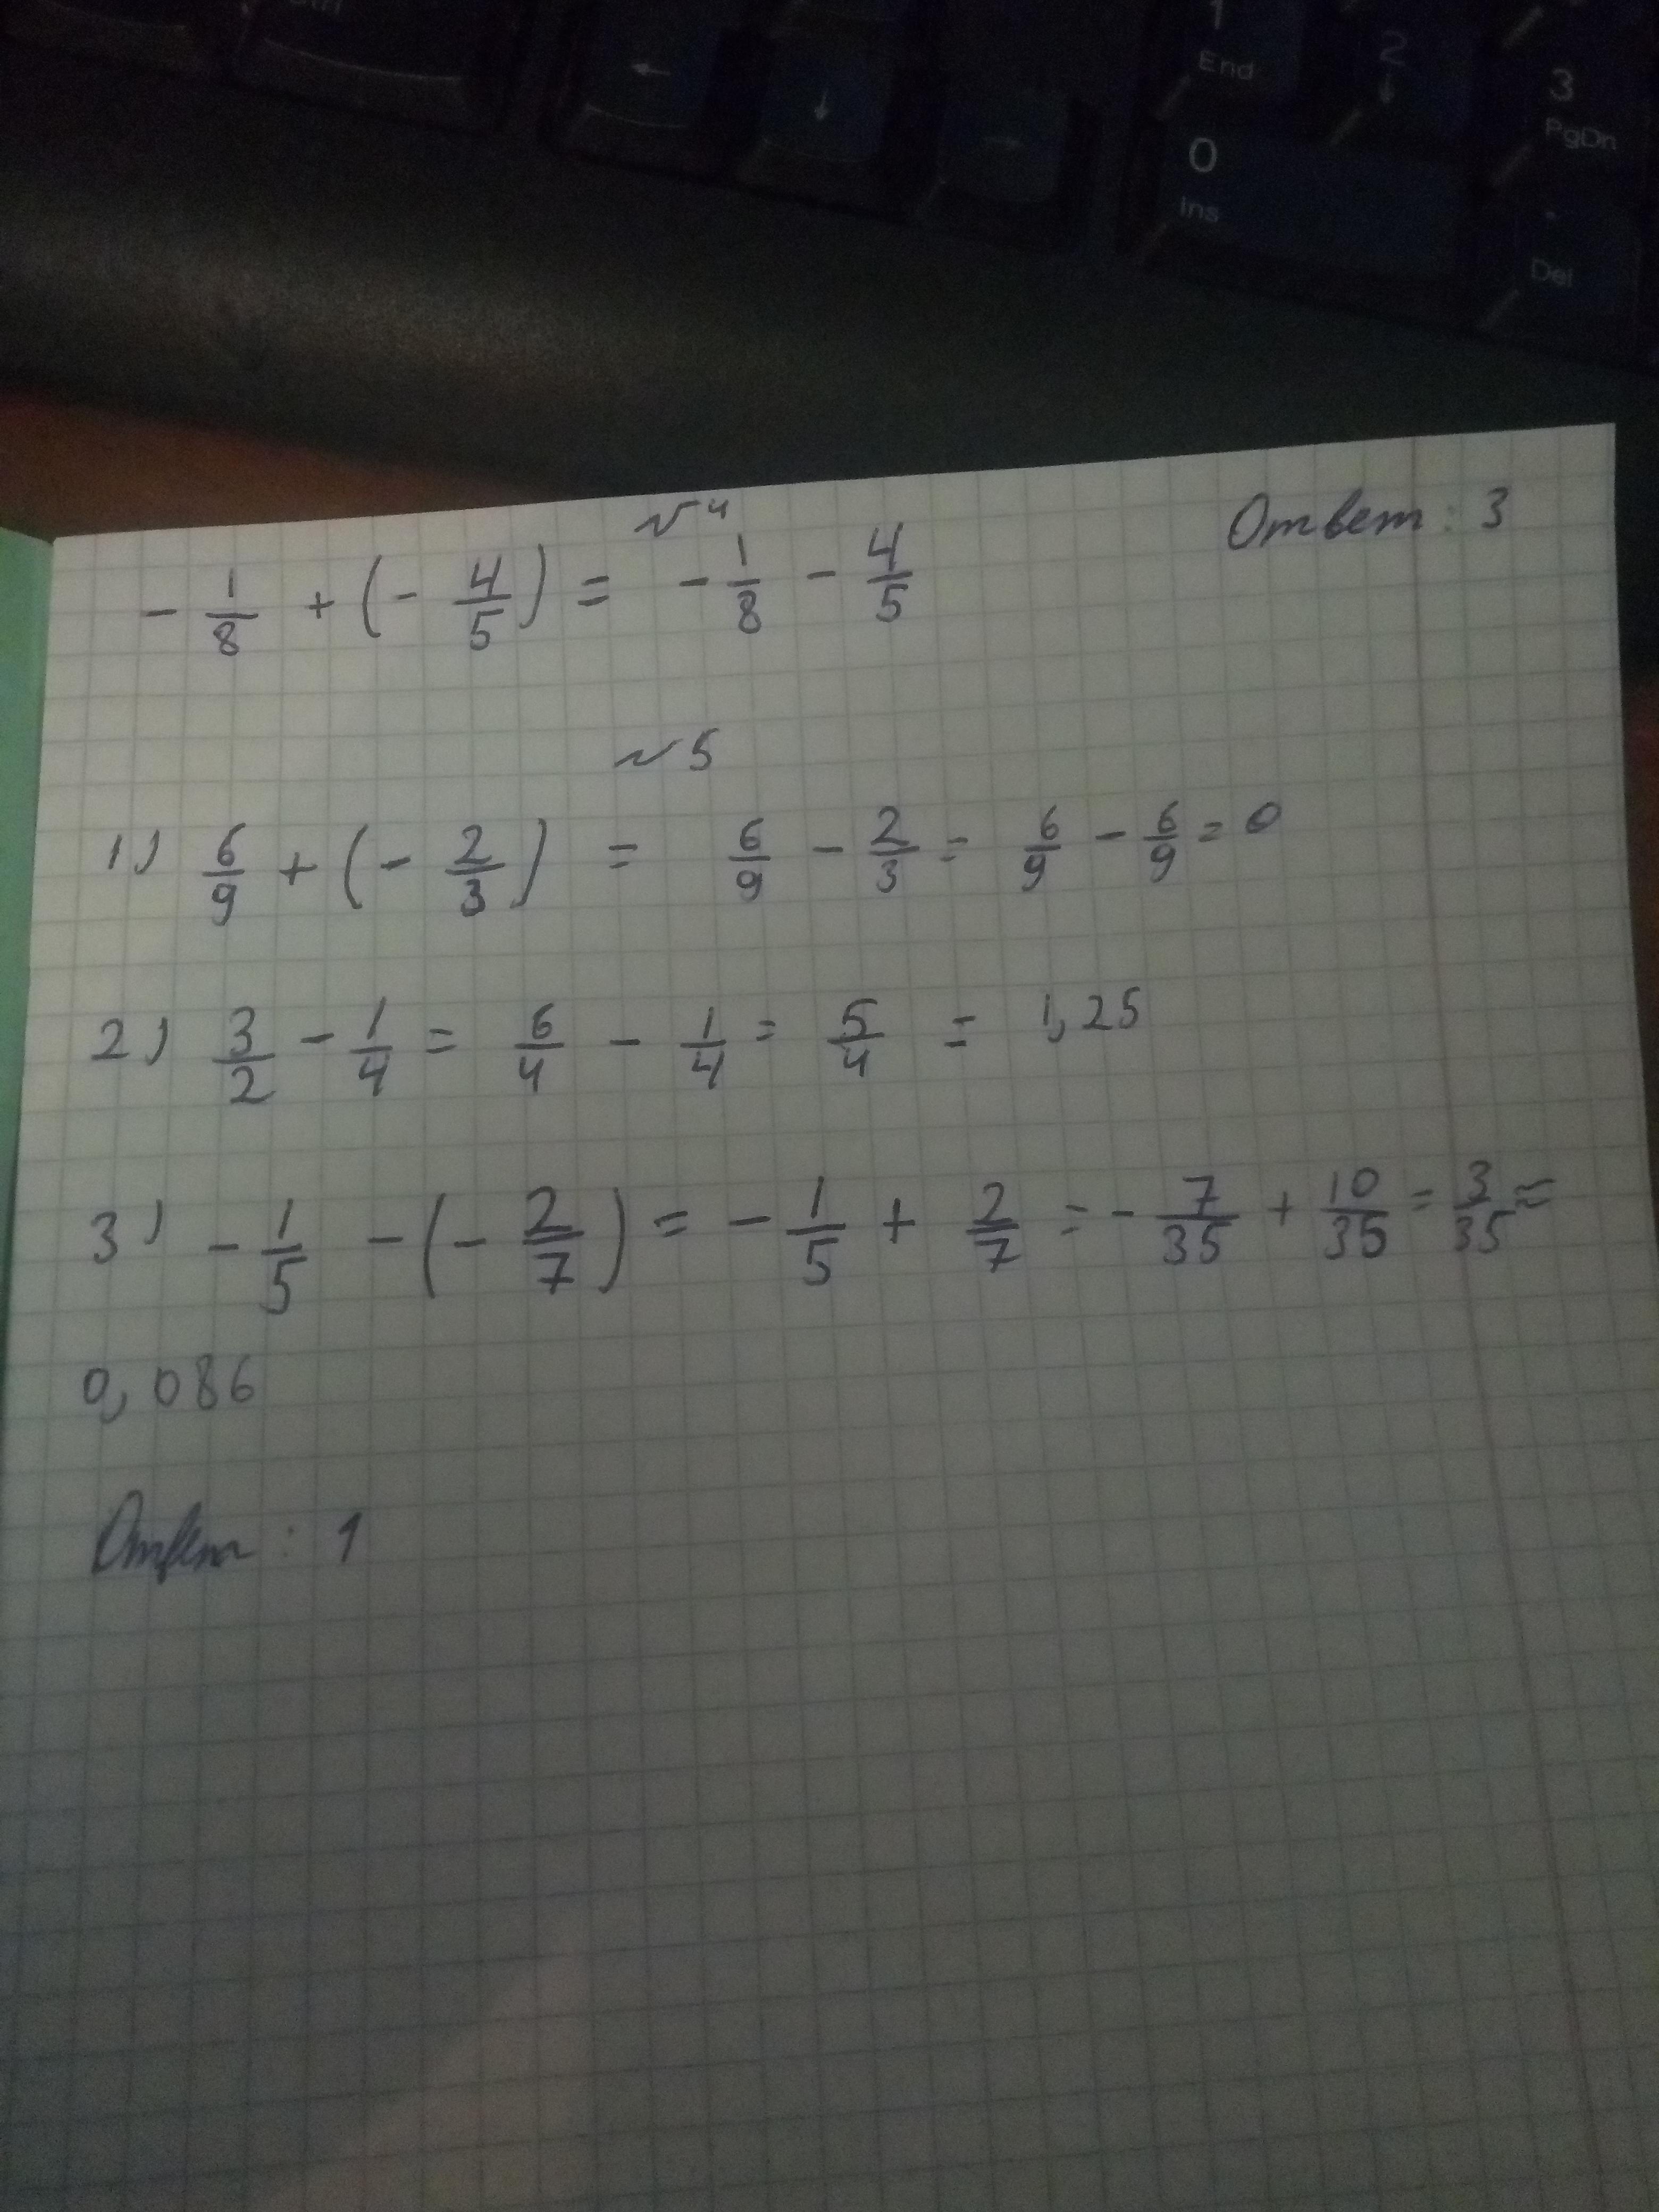 ← ↓ → 1 End 2 ↓ 3 PgDn
0 Ins . Del
№4 Ответ: 3
- 1/8 + (- 4/5) = - 1/8 - 4/5
№5
1) 6/9 + (- 2/3) = 6/9 - 2/3 = 6/9 - 6/9 = 0
2) 3/2 - 1/4 = 6/4 - 1/4 = 5/4 = 1,25
3) - 1/5 - (- 2/7) = - 1/5 + 2/7 = - 7/35 + 10/35 = 3/35 =
0,086
Ответ: 1